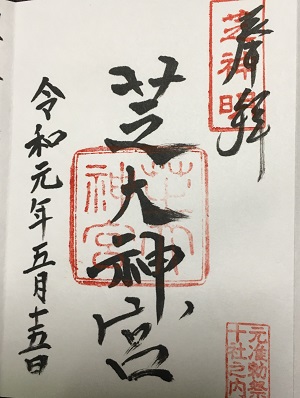 奉拝
芝神明
芝大神宮
令和元年五月十五日
元准勅祭
十社之内